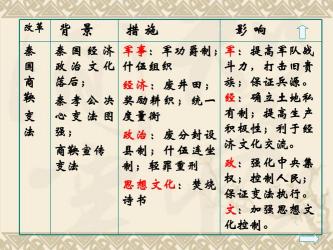 改革 背景 措施 影响
秦国商鞅变法
秦国经济
政治文化
落后；
秦孝公决
心变法图
强；
商鞅宣传
变法
军事：军功爵制；
什伍组织
经济：废井田；
奖励耕织；统一
度量衡
政治：废分封设
县制；什伍连坐
制；轻罪重刑
思想文化：焚烧
诗书
军：提高军队战
斗力，打击旧贵
族；保证兵源。
经：确立土地私
有制；提高生产
积极性；利于经
济文化交流。
政：强化中央集
权；控制人民；
保证变法执行。
文：加强思想文
化控制。